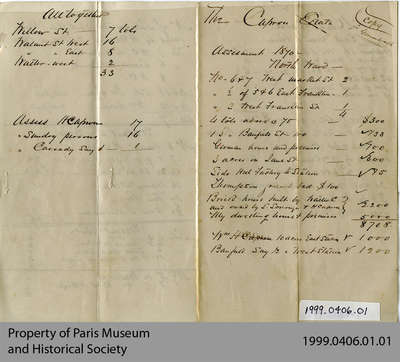 All together
Willow St. 7 lots
Walnut St West 16
" " East 8
Walter - west 2
33
Assess H Capron 17
" Sundry persons 16
" Cassady Say 1
The Capron Estate
Copy
Assessment 1870
North Ward
No 6 & 7 West Market St 2
" ½ of 5 & 6 East Franklin 1
" 2 West Franklin St 1
4
4 lots above @ 75 $300
German house and premises 700
5 acres on Lane St 600
Thompson
Brick house built by
and owned by & H Capron 3200
My dwelling house & premises 5000
8708
Wm H Capron 10 acres East Station 1000
Banfield Say & West Station 1200
1999.0406.01
Property of Paris Museum
and Historical Society
1999.0406.01.01